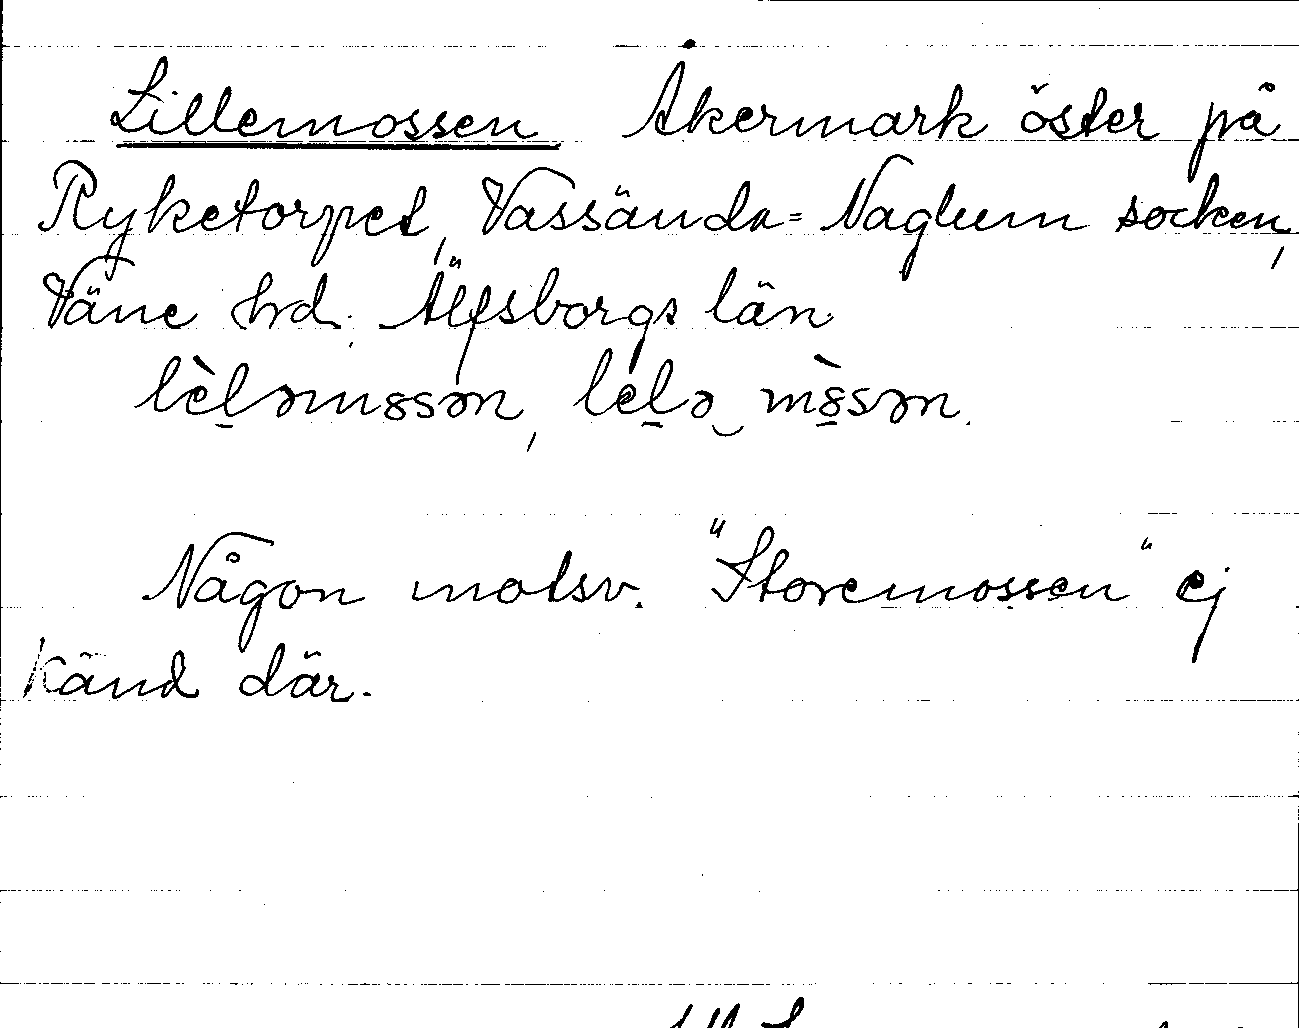 Lillemossen Åkermark öster på
Ryketorpet, Vassända-Naglum socken,
Väne hrd. Älfsborgs län
lèl̠əmssən, lel̠ə‿m8̠̀ssən.
Någon motsv. "Storemossen" ej
känd där.